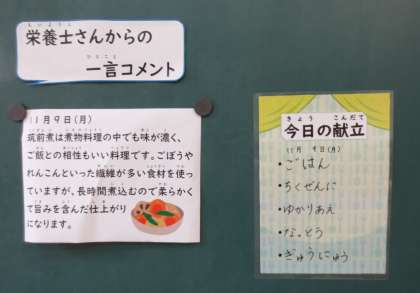 栄養士さんからの
一言コメント
11月9日(月)
筑前煮は煮物料理の中でも味が濃く、
ご飯との相性もいい料理です。ごぼうや
れんこんといった繊維が多い食材を使っ
ていますが、長時間煮込むので柔らかく
て旨みを含んだ仕上がり
になります。
きょう こんだて
今日の献立
11月 9日(月)
・ごはん
・ちくぜんに
・ゆかりあえ
・なっとう
・ぎゅうにゅう